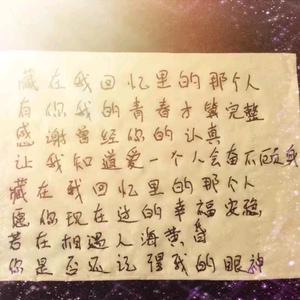 藏在我回忆里的那个人
有你我的青春才算完整
感谢曾经你的认真
让我知道爱一个人会奋不顾身
藏在我回忆里的那个人
愿你现在过的幸福安稳
若在相遇人海黄昏
你是否还记得我的眼神